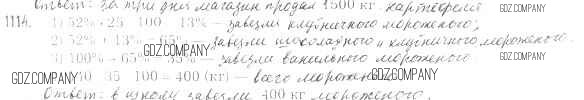 Ответ: за три дня магазин продал 1500 кг картофеля GDZ.COMPANY
1114. 1) 52% : 25 · 100 = 13% — завезли клубничного мороженого;
2) 52% + 13% = 65% — завезли шоколадного и клубничного мороженого.
GDZ.COMPANY
3) 100% − 65% = 35% — завезли ванильного мороженого GDZ.COMPANY
GDZ.COMPANY 40 : 35 · 100 = 400 (кг) — всего мороженого GDZ.COMPANY
Ответ: в школу завезли 400 кг мороженого.